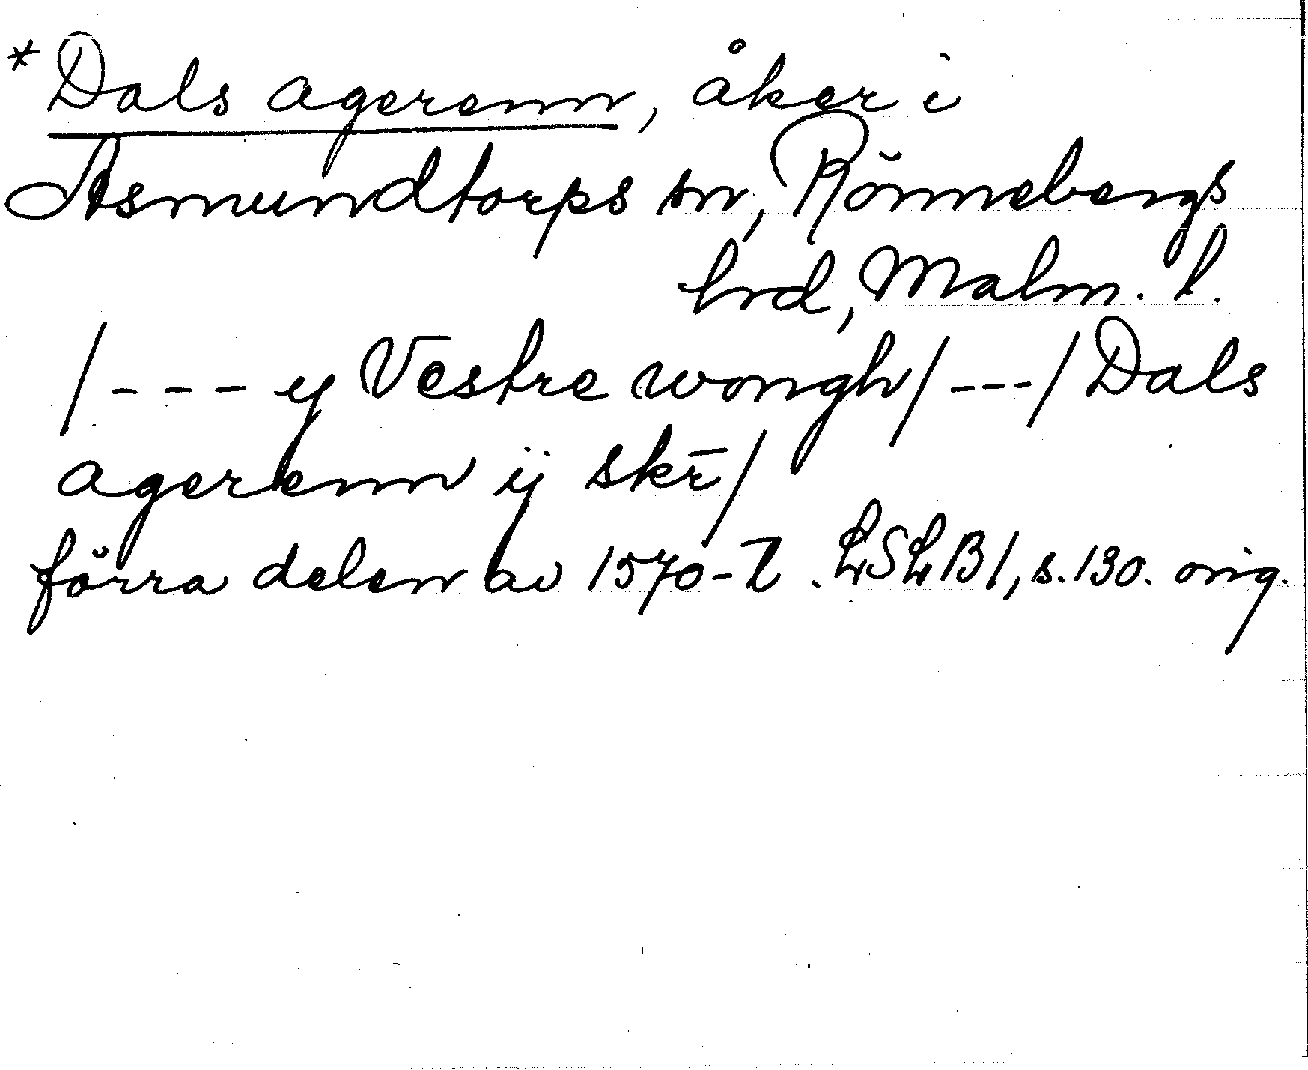 *Dals agerenn, åker i
Asmundtorps sn, Rönnebergs
hrd, Malm. l.
/--- y Vestre wongh/---/Dals
agerenn ij skr̄/
förra delen av 1570-t. LSLB1, s.130. orig.